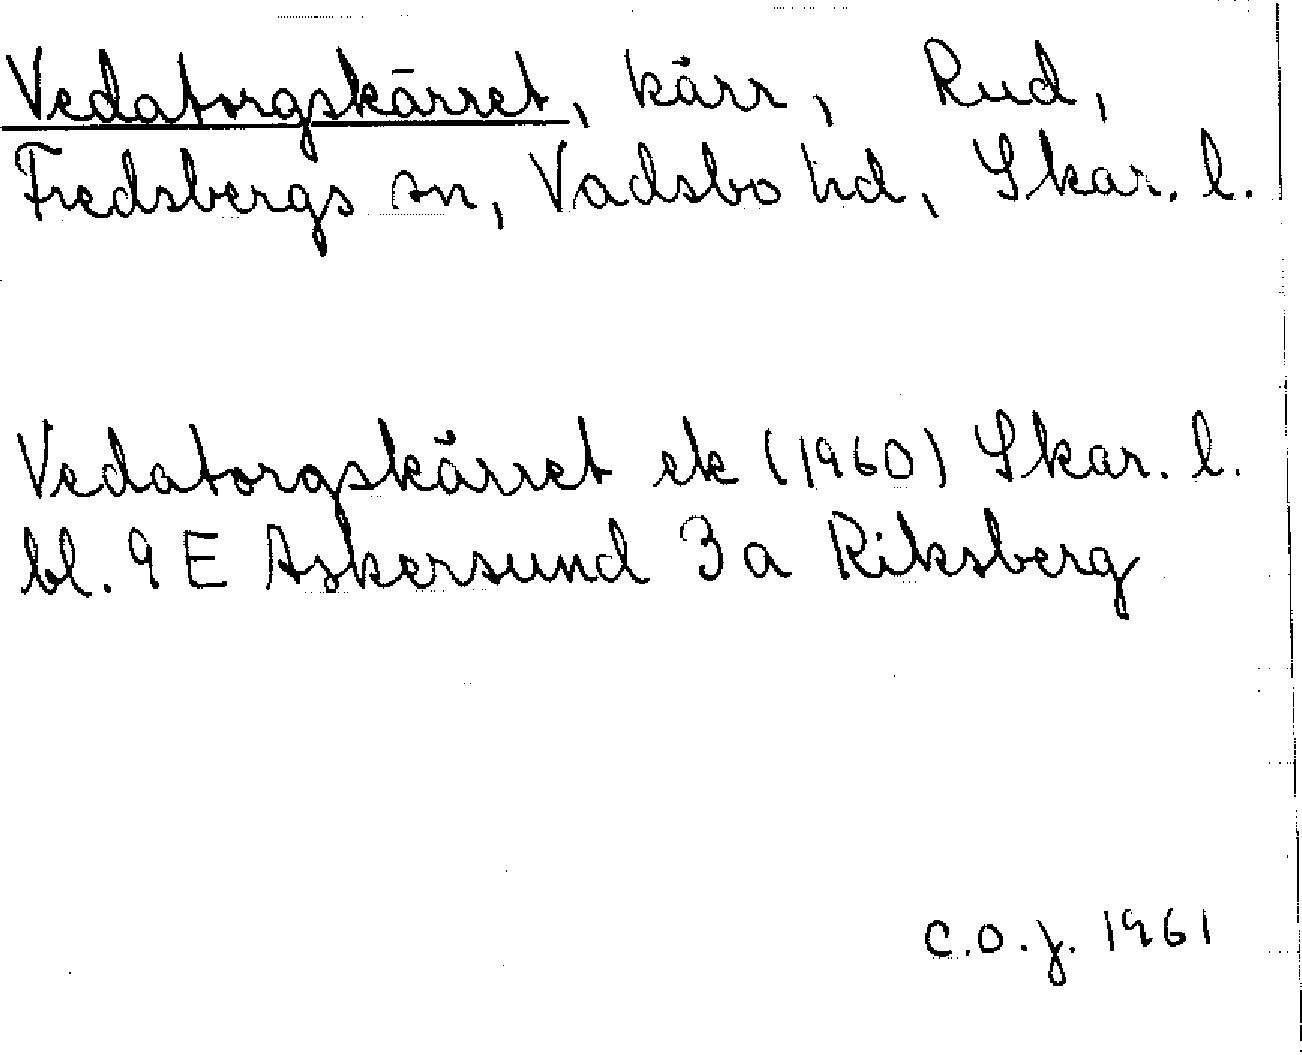 Vedatorgskärret, kärr, Rud,
Fredsbergs sn, Vadsbo hd, Skar. l.
Vedatorgskärret ek (1960) Skar. l.
bl. 9 E Askersund 3 a Riksberg
C.O.J. 1961